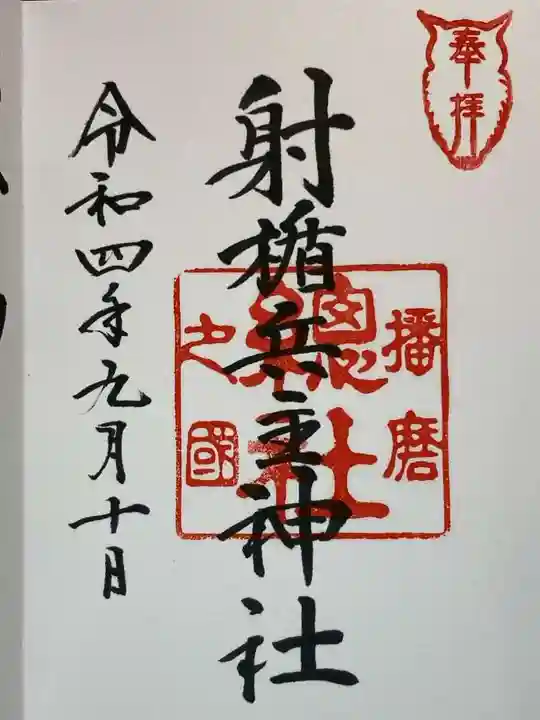 奉拝
射楯兵主神社
播磨
之國
總社
令和四年九月十日